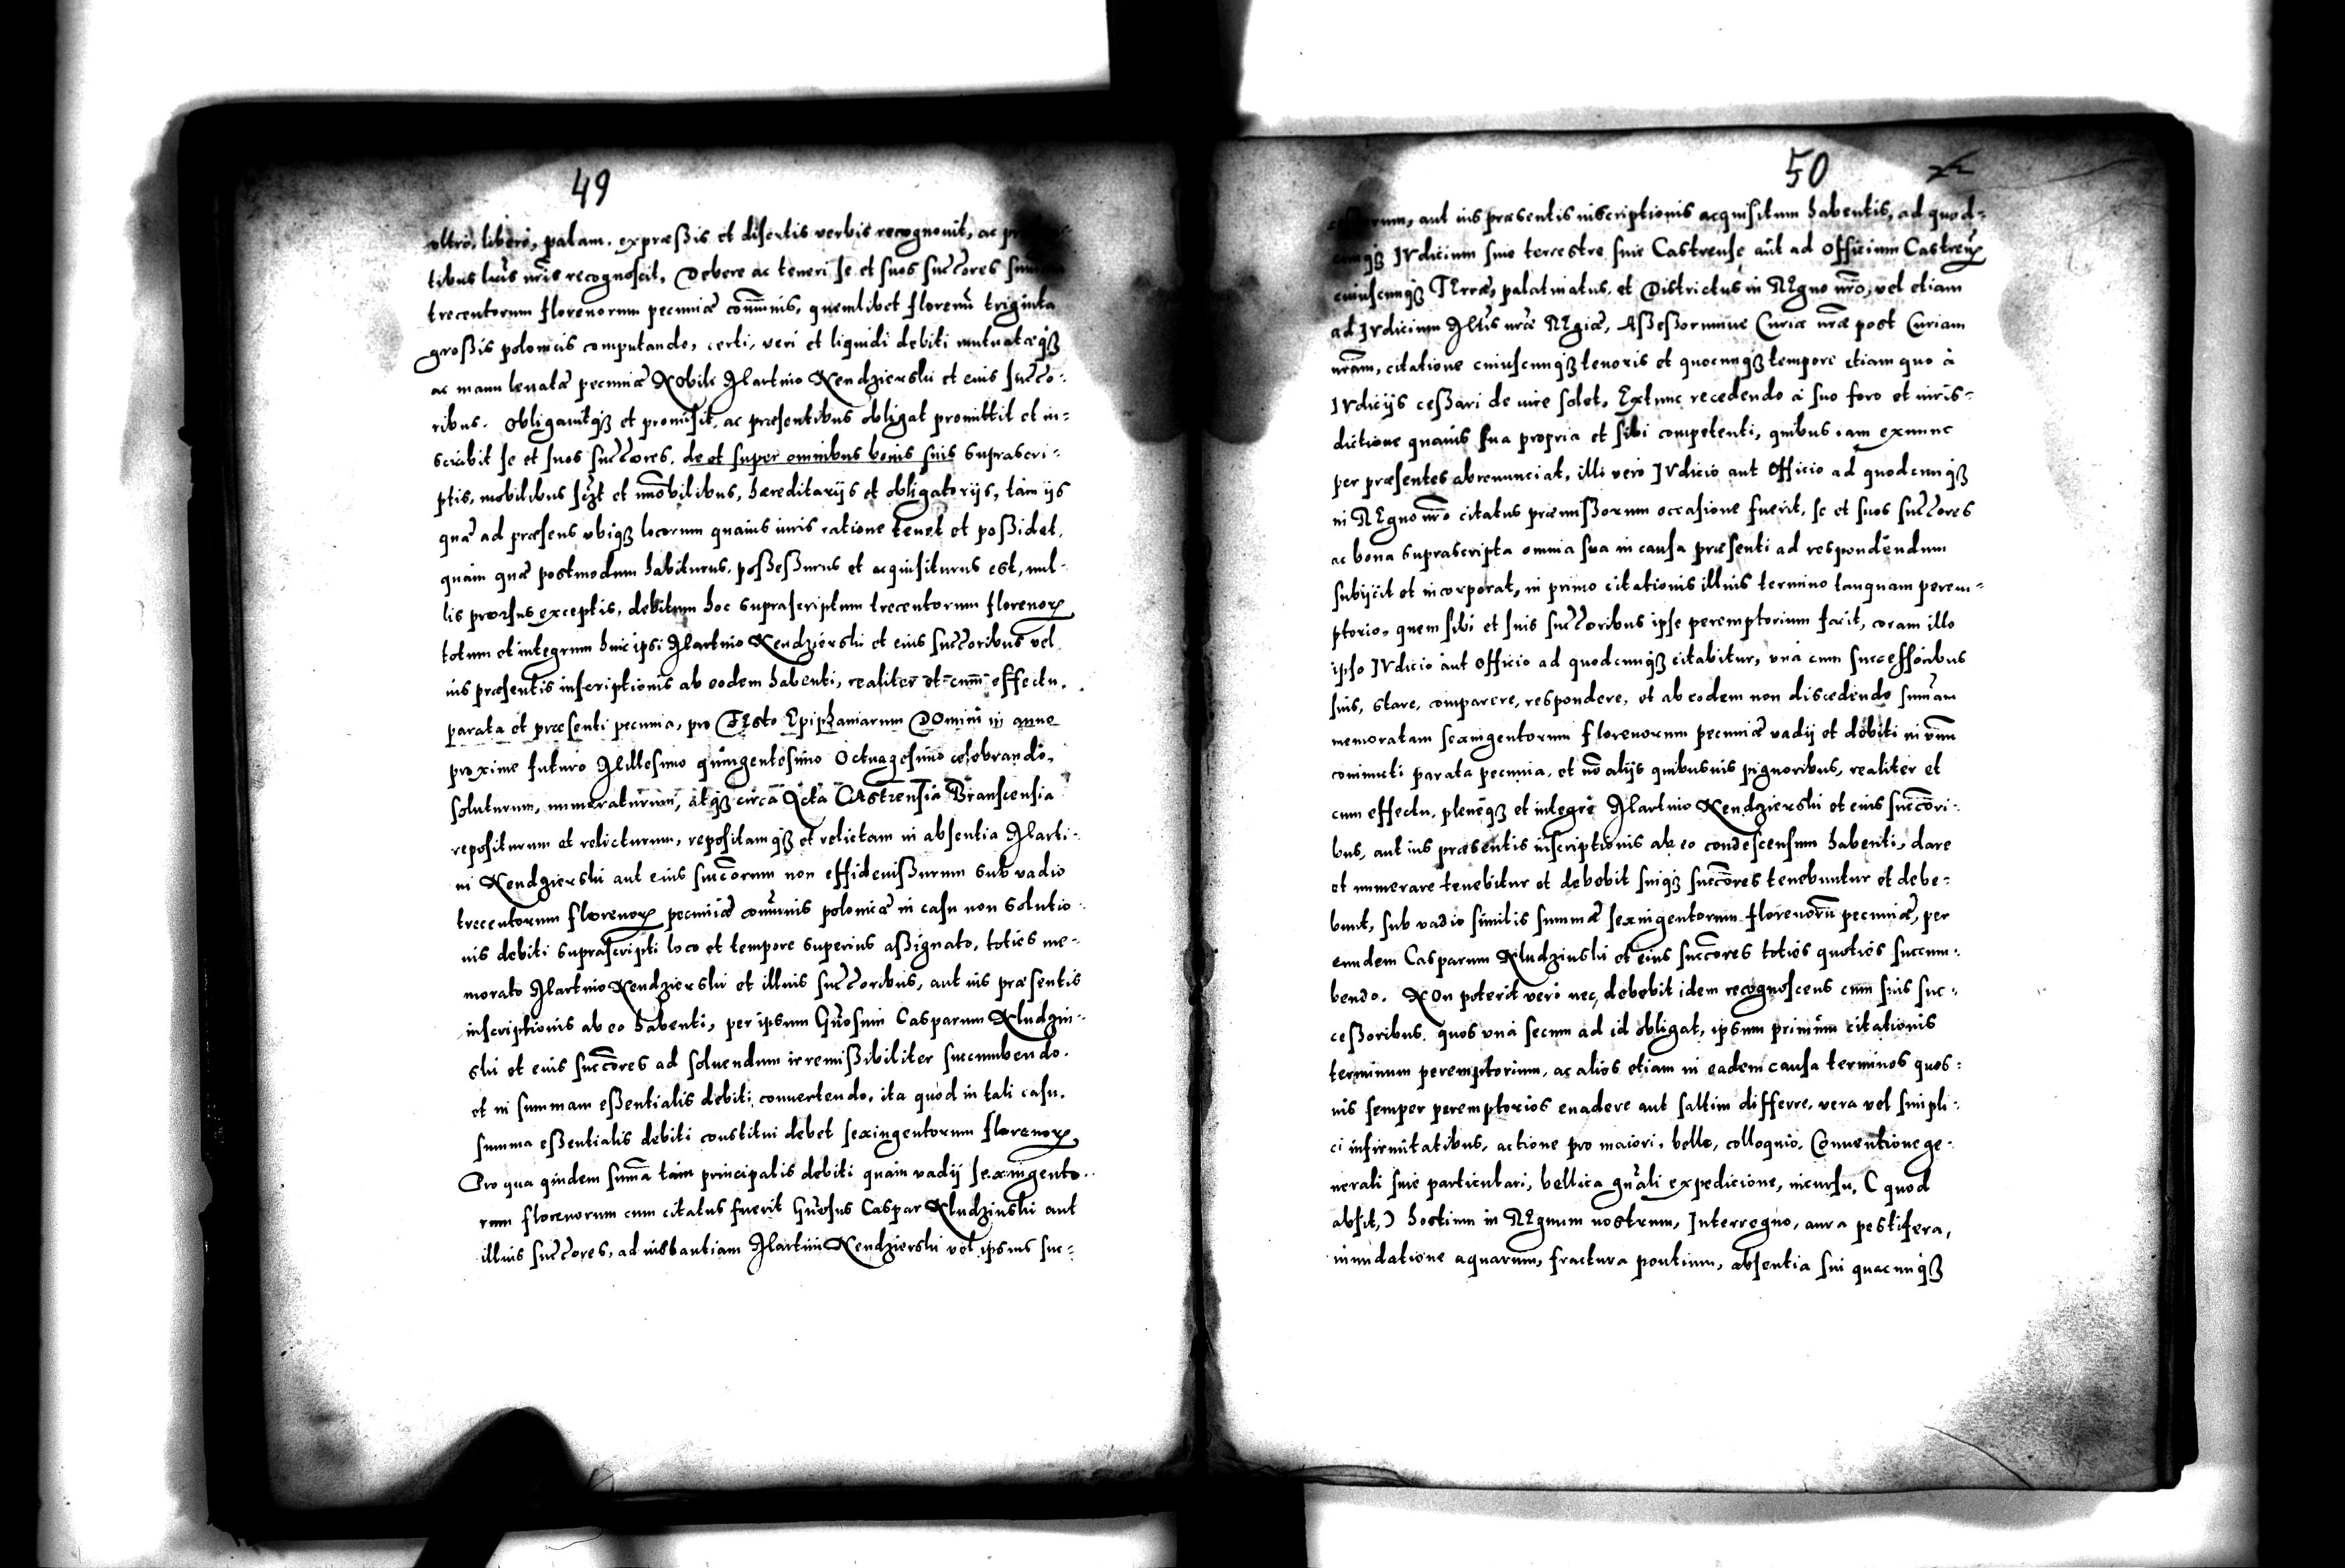 49
oltro, libero, palam, expræßis et disertis verbis recognouit, ac
tibus lr̃is nr̃is recognoscit, Debere ac teneri se et suos succ̃ores
trecentorum florenorum pecuniæ com̃unis, quemlibet florenũ triginta
großis polonicis computando, certi, veri et liquidi debiti mutuatæq;
ac manu leuatæ pecuniæ Nobili Martino Kendzierski et eius succ̃o-
ribus. Obligauitq; et promisit, ac præsentibus obligat promittit et in-
scribit se et suos succ̃ores, de et super omnibus bonis suis suprascri-
ptis, mobilibus sc̃zt et im̃obilibus, hæreditarijs et obligatorijs, tam ijs
quæ ad præsens vbiq; locorum quauis iuris ratione tenet et poßidet,
quàm quæ postmodum habiturus, poßeßurus et acquisiturus est, nul-
lis prorsus exceptis, debitum hoc suprascriptum trecentorum florenorꝝ
totum et integrum huic ipsi Martino Kendzierski et eius succ̃oribus vel
ius præsentis inscriptionis ab eodem habenti, realiter et cum effectu,
parata et præsenti pecunia, pro FEsto Epiphaniarum DOmini in anno
proxime futuro Millesimo quingentesimo Octuagesimo celebrando,
soluturum, numeraturum, atq; circa Acta CAstrensia Branscensia
repositurum et relicturum, repositamq; et relictam in absentia Marti-
ni Kendzierski aut eius succ̃orum non effideiußurum sub vadio
trecentorum florenorꝝ pecuniæ com̃unis polonicæ in casu non solutio-
nis debiti suprascripti loco et tempore superius aßignato, toties me-
morato Martino Kendzierski et illius succ̃oribus, aut ius præsentis
inscriptionis ab eo habenti, per ipsum Gñosum Casparum Kludzin-
ski et eius succ̃ores ad soluendum irremißibiliter succumbendo,
et in summam eßentialis debiti conuertendo, ita quod in tali casu,
summa eßentialis debiti constitui debet sexingentorum florenorꝝ,
Pro qua quidem sum̃a tàm principalis debiti quàm vadij sexingento-
rum florenorum cum citatus fuerit Gñosus Caspar Kludzinski aut
illius succ̃ores, ad instantiam Martini Kendzierski vel ipsius suc-
50
aut ius præsentis inscriptionis acquisitum habentis, ad quod-
cunq; IVdicium siue terrestre siue Castrense aut ad Officium Castreñ
cuiuscunq; TErræ, palatinatus, et Districtus in REgno nr̃o, vel etiam
ad IVdicium Mt̃is nr̃æ REgiæ, Aßeßorumue Curiæ nr̃æ post Curiam
nr̃am, citatione cuiuscunq; tenoris et quocunq; tempore etiam quo à
IVdicijs ceßari de iure solet, Extunc recedendo à suo foro et iuris-
dictione quauis sua propria et sibi competenti, quibus iam exnunc
per præsentes abrenunciat, illi vero IVdicio aut Officio ad quodcunq;
in REgno nr̃o citatus præmißorum occasione fuerit, se et suos succ̃ores
ac bona suprascripta omnia sua in causa præsenti ad respondendum
subijcit et incorporat, in primo citationis illius termino tanquam perem-
ptorio, quem sibi et suis succ̃oribus ipse peremptorium facit, coram illo
ipso IVdicio aut Officio ad quodcunq; citabitur, vnà cum successoribus
suis, stare, comparere, respondere, et ab eodem non discedendo sum̃am
memoratam sexingentorum florenorum pecuniæ vadij et debiti in vnũ
coniuncti parata pecunia, et nõ alijs quibusuis pignoribus, realiter et
cum effectu, pleneq; et integre Martino Kendzierski et eius succ̃ori-
bus, aut ius præsentis inscriptionis ab eo condescensum habenti, dare
et numerare tenebitur et debebit suiq; succ̃ores tenebuntur et debe-
bunt, sub vadio similis summæ sexingentorum florenorũ pecuniæ, per
eundem Casparum Kludzinski et eius succ̃ores toties quoties succum-
bendo. NOn poterit verò nec debebit idem recognoscens cum suis suc-
ceßoribus, quos vnà secum ad id obligat, ipsum primum citationis
terminum peremptorium, ac alios etiam in eadem causa terminos quos-
uis semper peremptorios euadere aut saltim differre, vera vel simpli-
ci infirmitatibus, actione pro maiori, bello, colloquio, Conuentione ge-
nerali siue particulari, bellica gñali expedicione, incursu, ( quod
absit, ) hostium in REgnum nostrum, Interregno, aura pestifera,
inundatione aquarum, fractura pontium, absentia sui quacunq;